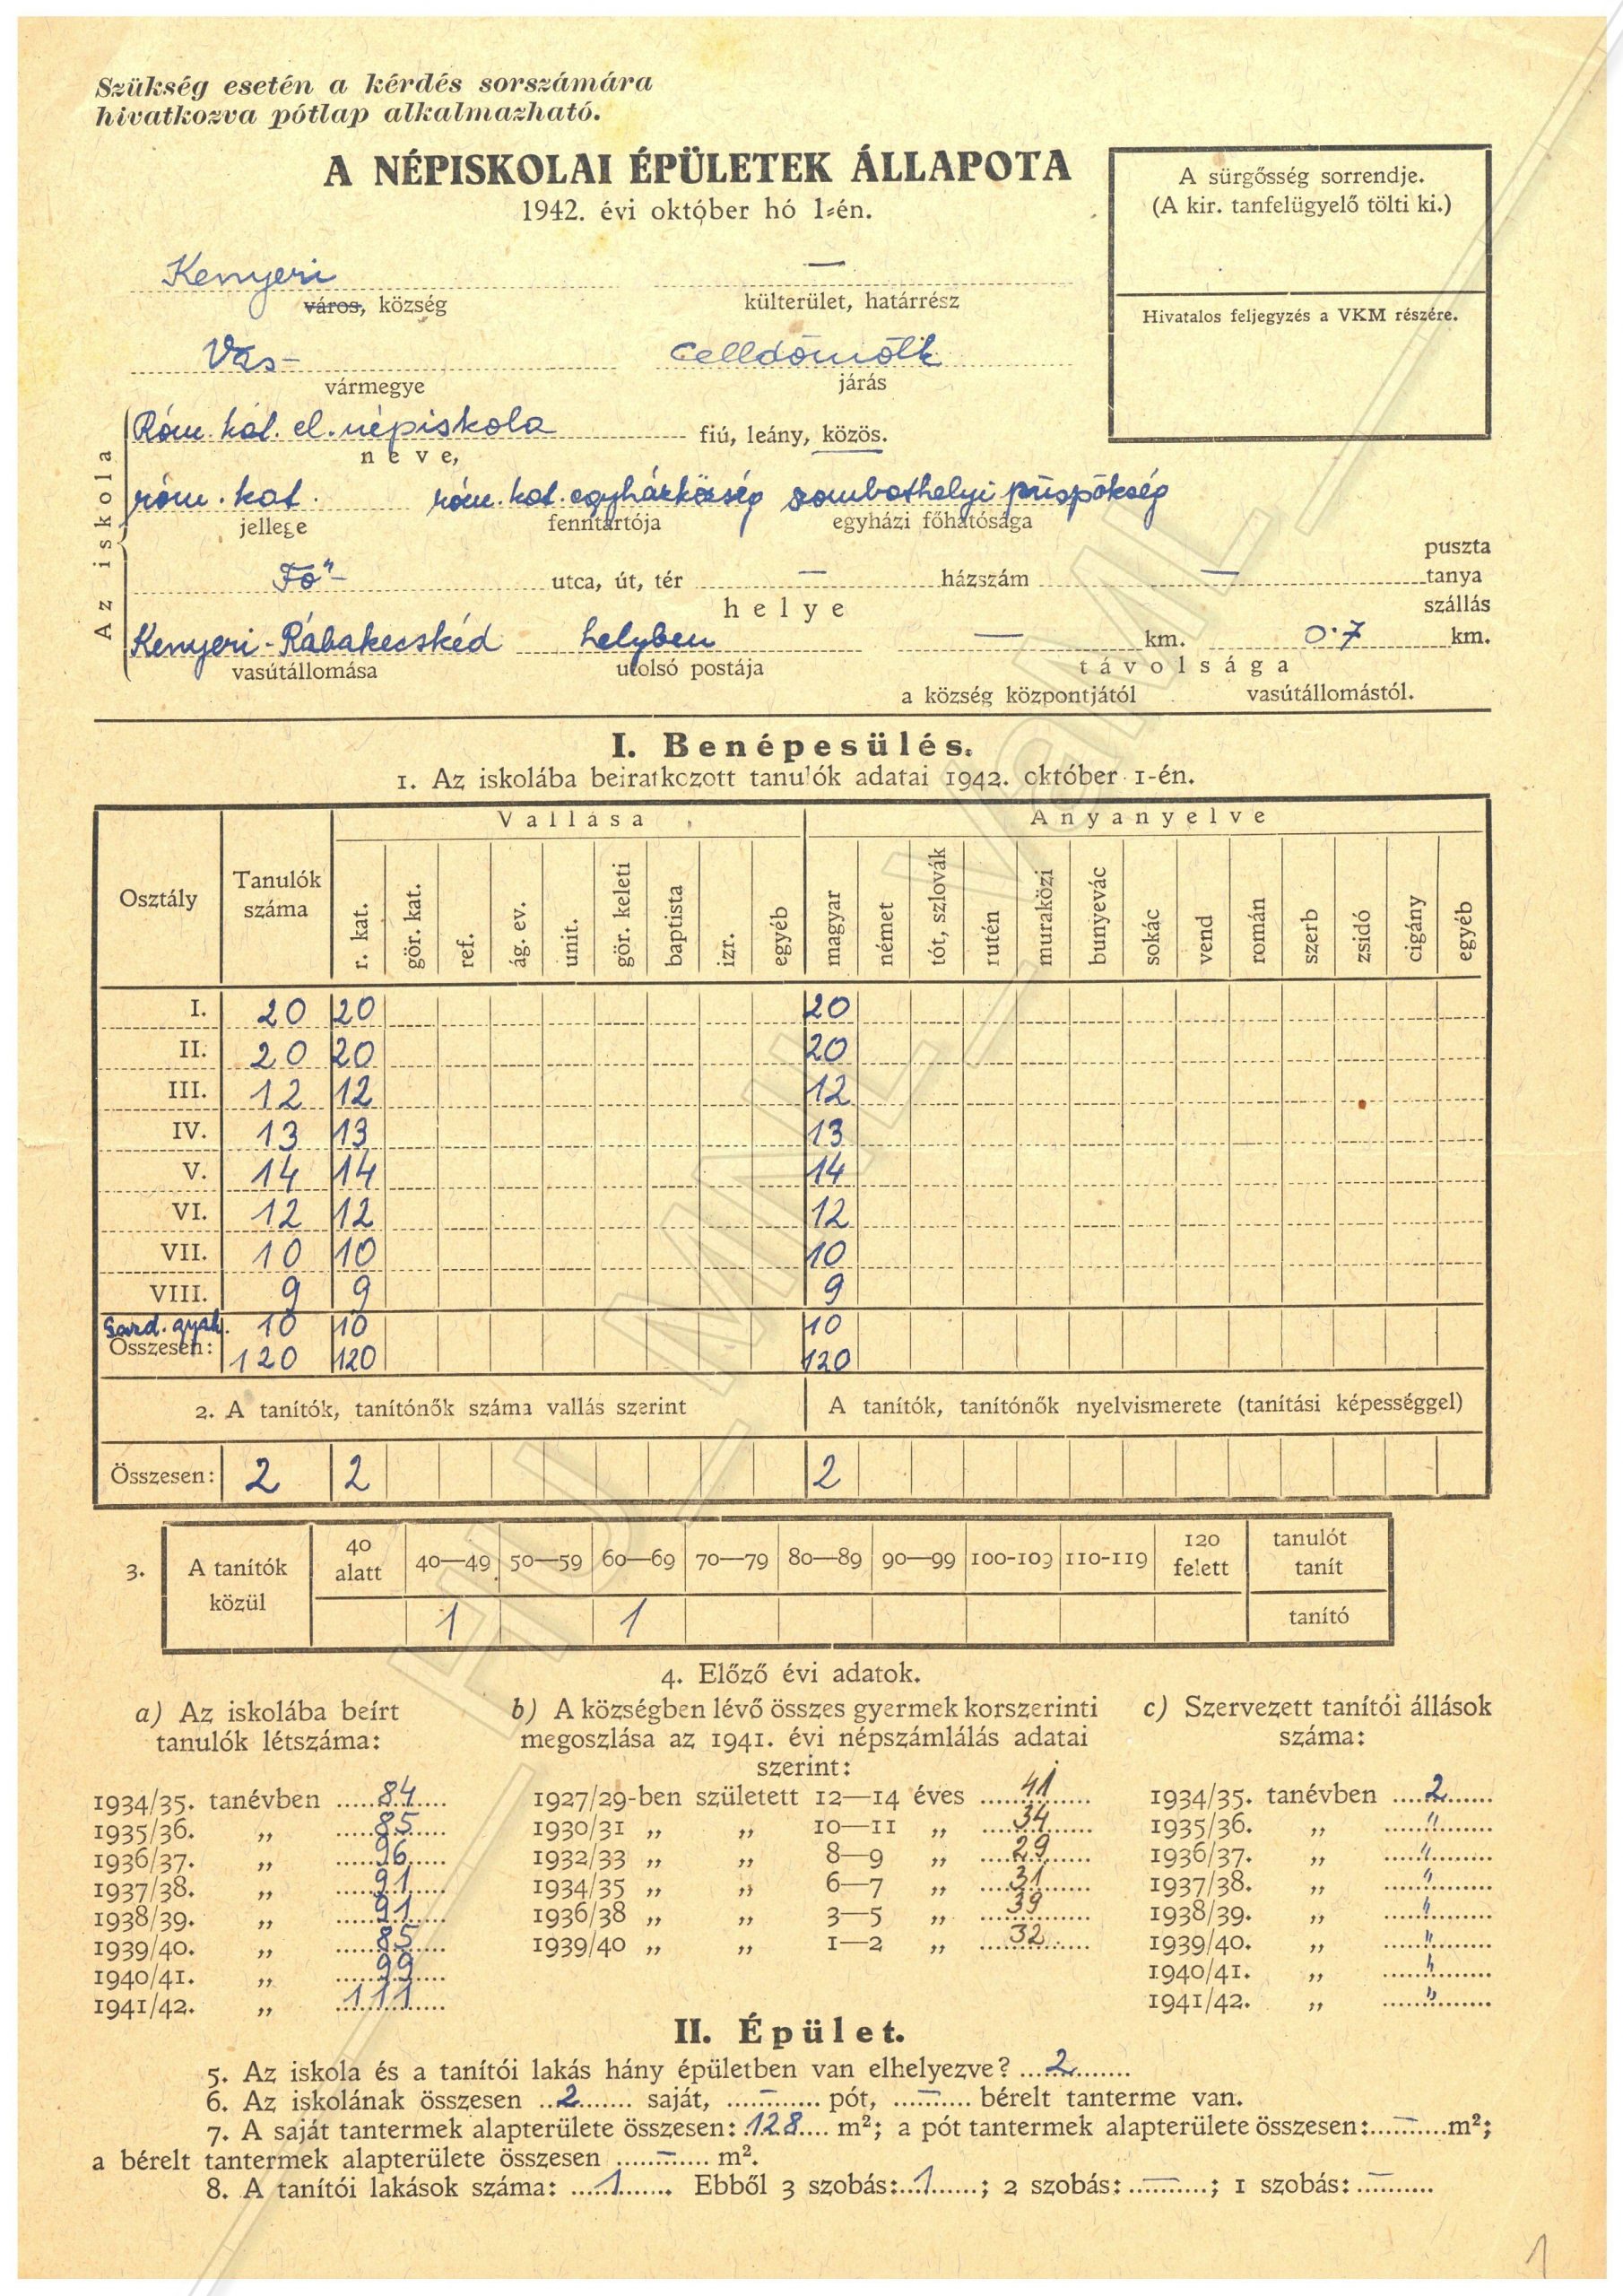 Szükség esetén a kérdés sorszámára
hivatkozva pótlap alkalmazható.
A NÉPISKOLAI ÉPÜLETEK ÁLLAPOTA
1942. évi október hó 1-én.
A sürgősség sorrendje.
(A kir. tanfelügyelő tölti ki.)
Hivatalos feljegyzés a VKM részére.
Kenyeri —
város, község külterület, határrész
Vas- Celldömölk
vármegye járás
Az iskola
Róm. kat. el. népiskola fiú, leány, közös.
neve,
róm. kat. róm. kat. egyházközség szombathelyi püspökség
jellege fenntartója egyházi főhatósága
puszta
Fő- utca, út, tér — házszám — tanya
helye szállás
Kenyeri-Rábakecskéd helyben — km. 0·7 km.
vasútállomása utolsó postája távolsága
a község központjától vasútállomástól.
I. Benépesülés.
1. Az iskolába beiratkozott tanulók adatai 1942. október 1-én.
Vallása Anyanyelve
Osztály Tanulók száma r. kat. gör. kat. ref. ág. ev. unit. gör. keleti baptista izr. egyéb magyar német tót, szlovák rutén muraközi bunyevác sokác vend román szerb zsidó cigány egyéb
I. 20 20 20
II. 20 20 20
III. 12 12 12
IV. 13 13 13
V. 14 14 14
VI. 12 12 12
VII. 10 10 10
VIII. 9 9 9
Gazd. gyak. 10 10 10
Összesen: 120 120 120
2. A tanítók, tanítónők száma vallás szerint A tanítók, tanítónők nyelvismerete (tanítási képességgel)
Összesen: 2 2 2
3. A tanítók közül 40 alatt 40—49 50—59 60—69 70—79 80—89 90—99 100-109 110-119 120 felett tanulót tanít
1 1 tanító
4. Előző évi adatok.
a) Az iskolába beírt tanulók létszáma:
1934/35. tanévben 84
1935/36. „ 85
1936/37. „ 96
1937/38. „ 91
1938/39. „ 91
1939/40. „ 85
1940/41. „ 99
1941/42. „ 111
b) A községben lévő összes gyermek korszerinti
megoszlása az 1941. évi népszámlálás adatai
szerint:
1927/29-ben született 12—14 éves 41
1930/31 „ „ 10—11 „ 34
1932/33 „ „ 8—9 „ 29
1934/35 „ „ 6—7 „ 31
1936/38 „ „ 3—5 „ 39
1939/40 „ „ 1—2 „ 32
c) Szervezett tanítói állások
száma:
1934/35. tanévben 2
1935/36. „ "
1936/37. „ "
1937/38. „ "
1938/39. „ "
1939/40. „ "
1940/41. „ "
1941/42. „ "
II. Épület.
5. Az iskola és a tanítói lakás hány épületben van elhelyezve? 2
6. Az iskolának összesen 2 saját, — pót, — bérelt tanterme van.
7. A saját tantermek alapterülete összesen: 128 m²; a pót tantermek alapterülete összesen: — m²;
a bérelt tantermek alapterülete összesen — m².
8. A tanítói lakások száma: 1. Ebből 3 szobás: 1; 2 szobás: —; 1 szobás: —
1
HU_MNL_VaML